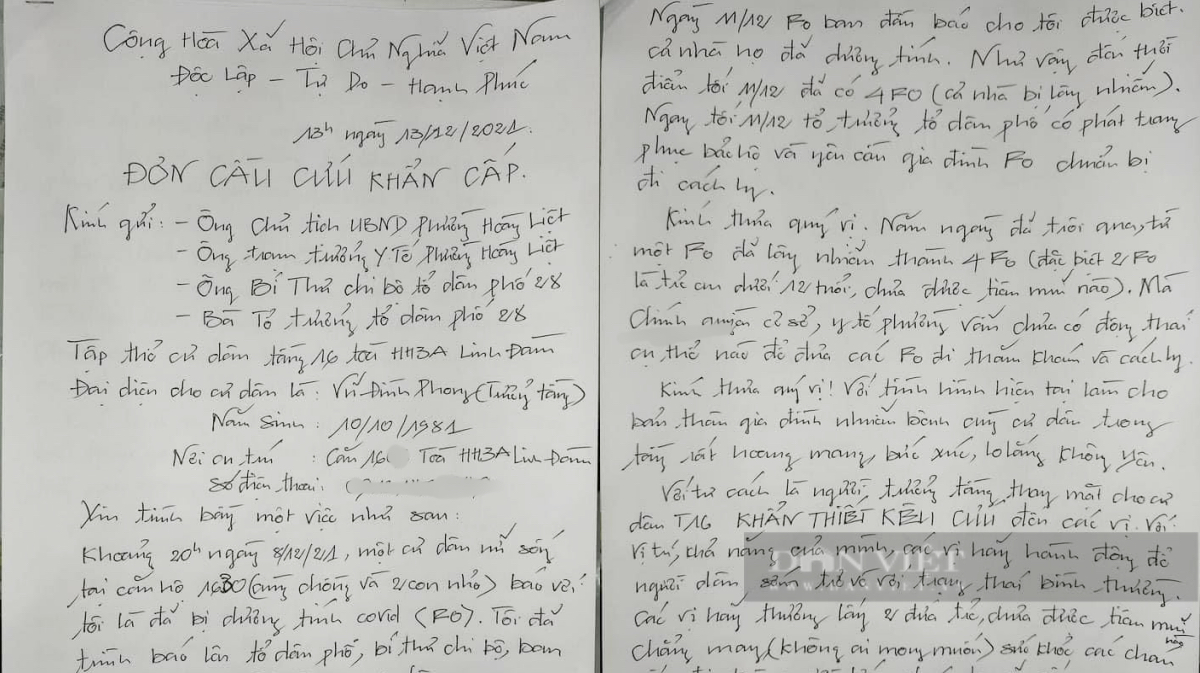 Cộng Hoà Xã Hội Chủ Nghĩa Việt Nam
Độc Lập - Tự Do - Hạnh Phúc
13h ngày 13/12/2021.
ĐƠN CẦU CỨU KHẨN CẤP.
Kính gửi: - Ông Chủ tịch UBND Phường Hoàng Liệt
- Ông trạm trưởng Y Tế Phường Hoàng Liệt
- Ông Bí Thư chi bộ tổ dân phố 28
- Bà Tổ trưởng tổ dân phố 28
Tập thể cư dân tầng 16 toà HH3A Linh Đàm
Đại diện cho cư dân là: Vũ Đình Phong (Trưởng tầng)
Năm Sinh: 10/10/1981
Nơi cư trú: Căn 16 Toà HH3A Linh Đàm
Số điện thoại:
Xin trình bày một việc như sau:
Khoảng 20h ngày 8/12/21, một cư dân nữ sống
tại căn hộ (cùng chồng và 2 con nhỏ) báo với
tôi là đã bị dương tính covid (F0). Tôi đã
trình báo lên tổ dân phố, bí thư chi bộ, ban
Ngày 11/12 F0 ban đầu báo cho tôi được biết.
cả nhà họ đã dương tính. Như vậy đến thời
điểm tối 11/12 đã có 4 F0 (cả nhà bị lây nhiễm).
Ngay tối 11/12 tổ trưởng tổ dân phố có phát trang
phục bảo hộ và yêu cầu gia đình F0 chuẩn bị
đi cách ly.
Kính thưa quý vị. Năm ngày đã trôi qua, từ
một F0 đã lây nhiễm thành 4 F0 (đặc biệt 2 F0
là trẻ em dưới 12 tuổi, chưa được tiêm mũi nào). Mà
Chính quyền cơ sở, y tế phường vẫn chưa có động thái
cụ thể nào để đưa các F0 đi thăm khám và cách ly.
Kính thưa quý vị! Với tình hình hiện tại làm cho
bản thân gia đình nhiễm bệnh cùng cư dân trong
tầng rất hoang mang, bức xúc, lo lắng không yên.
Với tư cách là người trưởng tầng, thay mặt cho cư
dân T16 KHẨN THIẾT KÊU CỨU đến các vị. Với
vị trí, khả năng của mình, các vị hãy hành động để
người dân sớm trở về với trạng thái bình thường.
Các vị hãy thương lấy 2 đứa trẻ, chưa được tiêm mũi nào
chẳng may (không ai mong muốn) sức khỏe các cháu
DÂN VIỆT